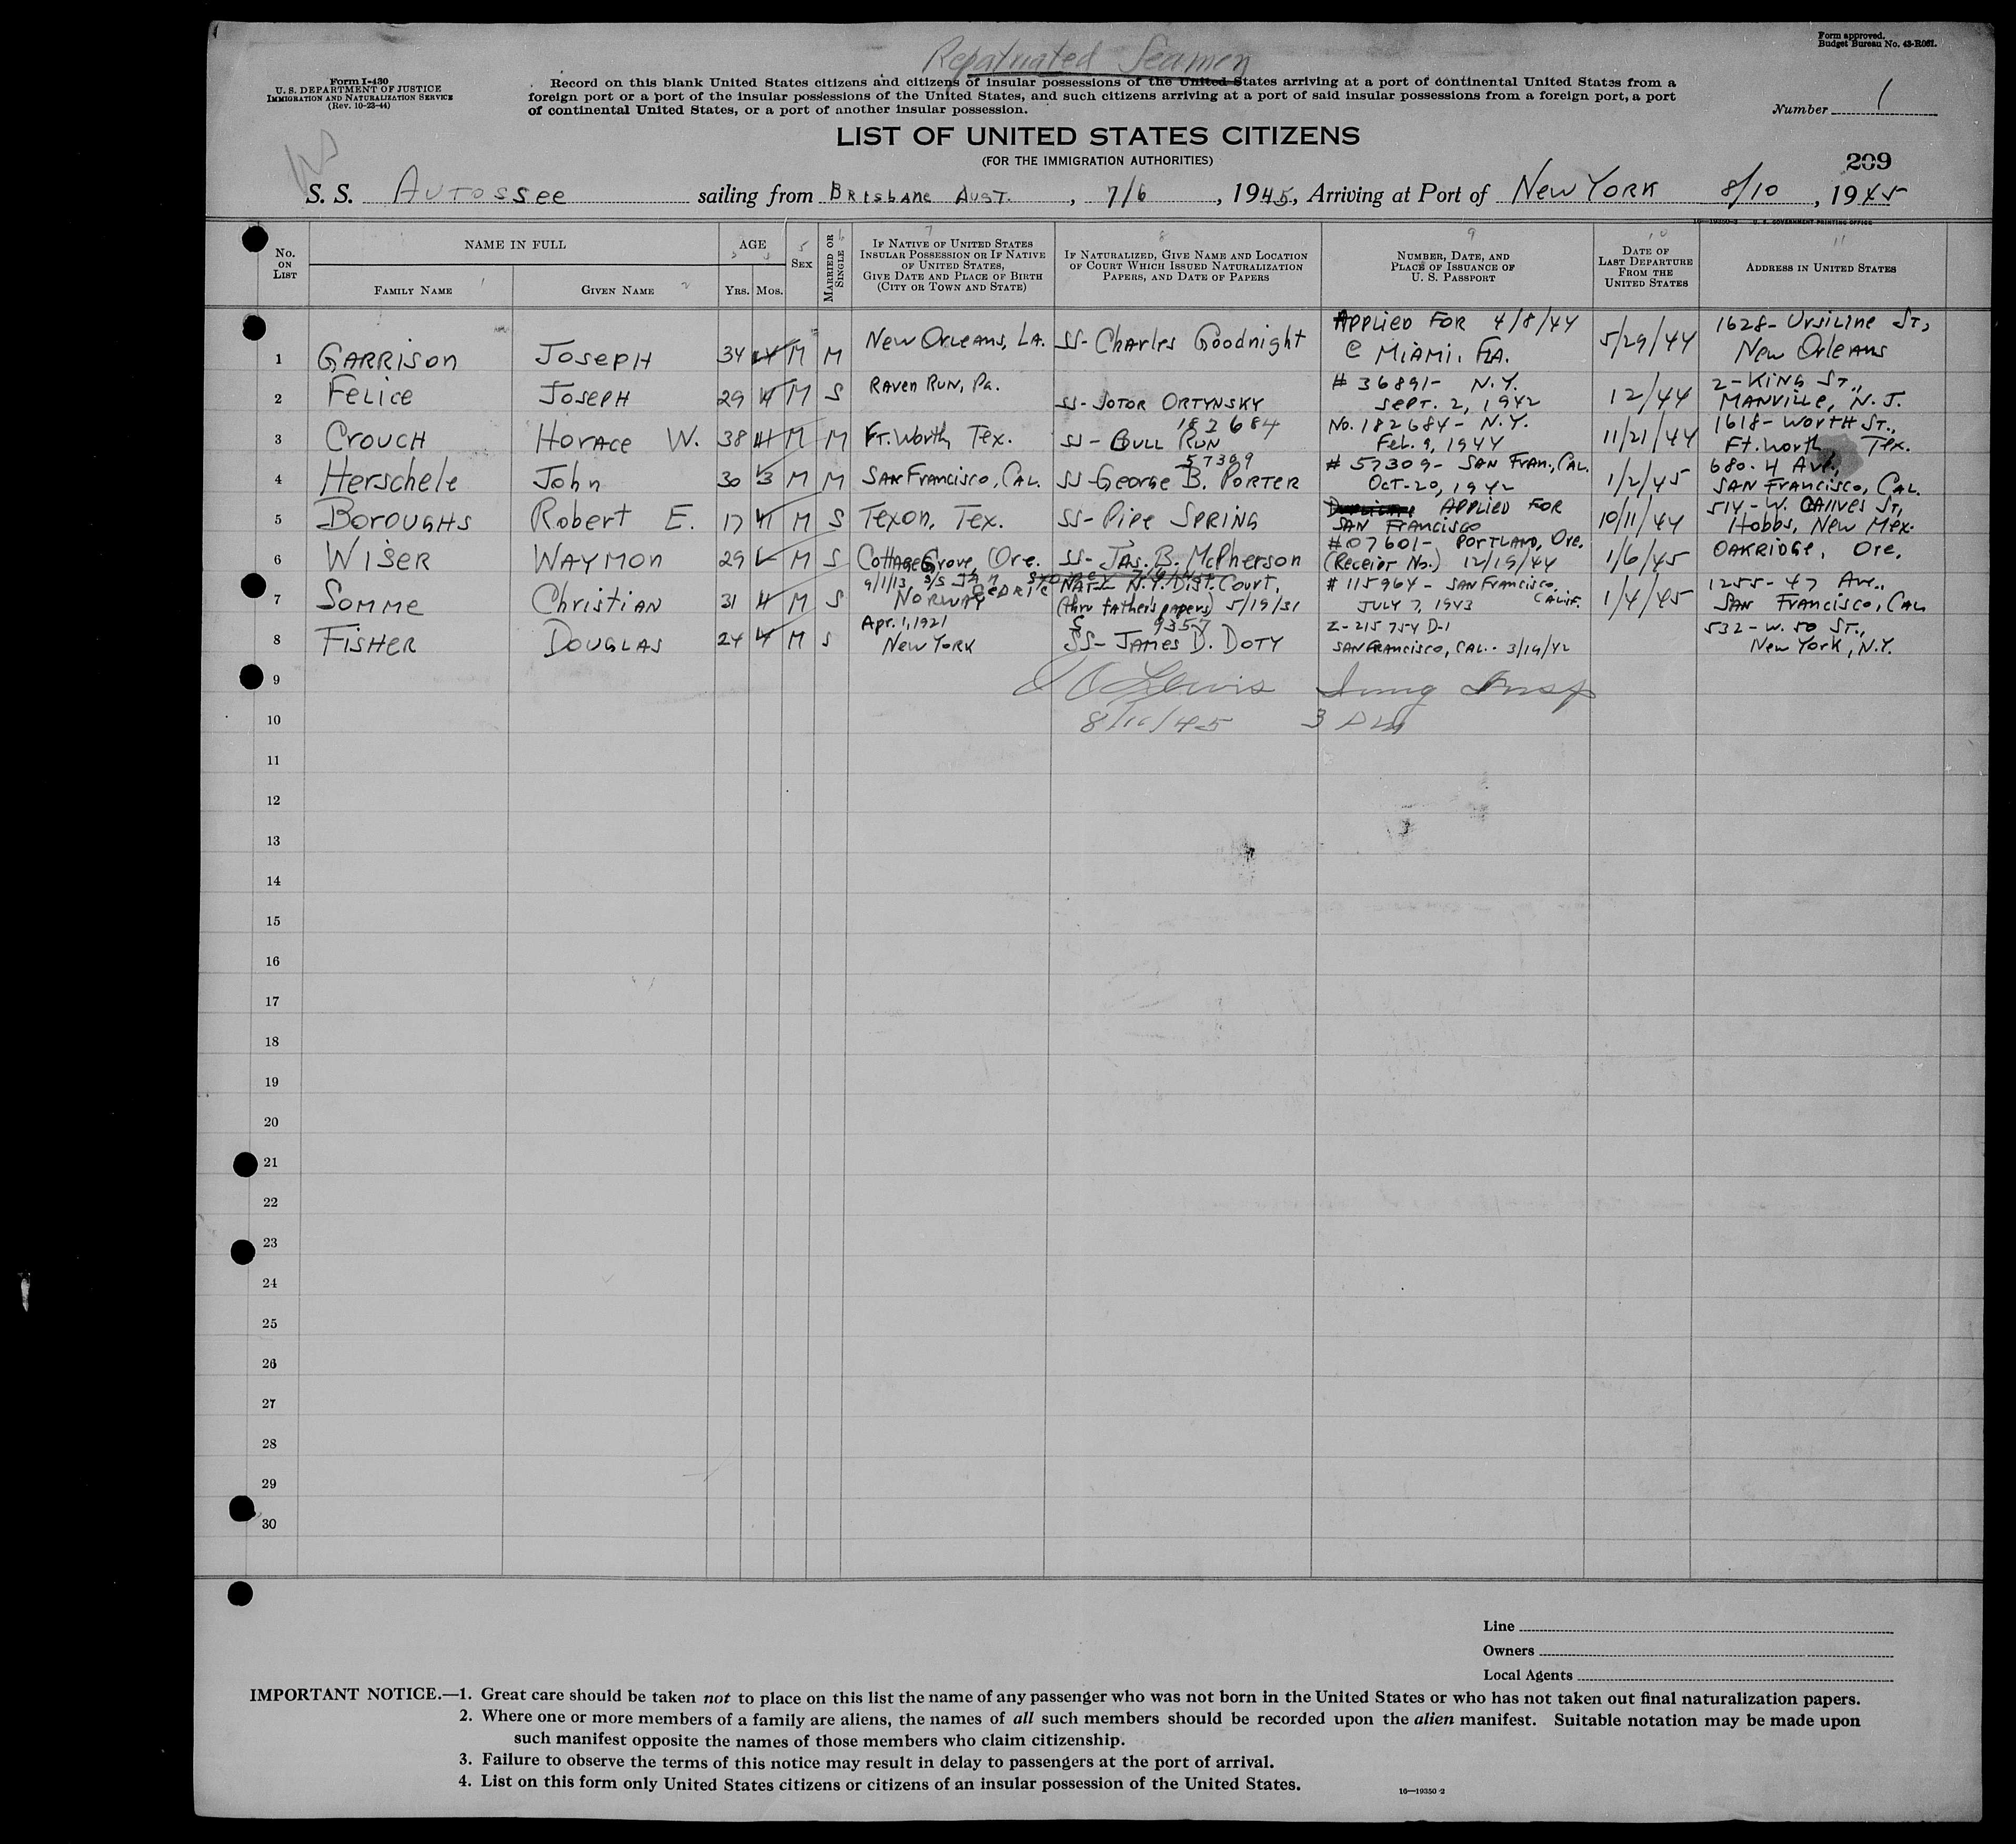 Repatriated Seamen
Form approved.
Budget Bureau No. 43-R061.
Form I-430
U. S. DEPARTMENT OF JUSTICE
IMMIGRATION AND NATURALIZATION SERVICE
(Rev. 10-23-44)
Record on this blank United States citizens and citizens of insular possessions of the United States arriving at a port of continental United States from a
foreign port or a port of the insular possessions of the United States, and such citizens arriving at a port of said insular possessions from a foreign port, a port
of continental United States, or a port of another insular possession.
Number 1
LIST OF UNITED STATES CITIZENS
(FOR THE IMMIGRATION AUTHORITIES)
209
S. S. AUTOSSEE sailing from BRISBANE AUST. , 7/6 , 1945, Arriving at Port of NEW YORK 8/10 , 1945
16—19350-2 U. S. GOVERNMENT PRINTING OFFICE
No. ON LIST
NAME IN FULL
FAMILY NAME 1
GIVEN NAME 2
AGE
Yrs. Mos.
5 SEX
MARRIED OR SINGLE 6
7
IF NATIVE OF UNITED STATES
INSULAR POSSESSION OR IF NATIVE
OF UNITED STATES,
GIVE DATE AND PLACE OF BIRTH
(CITY OR TOWN AND STATE)
8
IF NATURALIZED, GIVE NAME AND LOCATION
OF COURT WHICH ISSUED NATURALIZATION
PAPERS, AND DATE OF PAPERS
9
NUMBER, DATE, AND
PLACE OF ISSUANCE OF
U. S. PASSPORT
10
DATE OF
LAST DEPARTURE
FROM THE
UNITED STATES
11
ADDRESS IN UNITED STATES
1 GARRISON JOSEPH 34 M M NEW ORLEANS, LA. SS- CHARLES GOODNIGHT APPLIED FOR 4/8/44 @ MIAMI, FLA. 5/29/44 1628- URSILINE ST., NEW ORLEANS
2 FELICE JOSEPH 29 M S RAVEN RUN, Pa. SS- SOTOR ORTYNSKY # 36891- N.Y. SEPT. 2, 1942 12/44 2- KING ST., MANVILLE, N. J.
3 CROUCH HORACE W. 38 M M FT. WORTH, TEX. SS- BULL RUN 182684 No. 182684- N.Y. FEB. 9, 1944 11/21/44 1618- WORTH ST., FT. WORTH TEX.
4 HERSCHELE JOHN 30 3 M M SAN FRANCISCO, CAL. SS- GEORGE B. PORTER 57309 # 57309- SAN FRAN., CAL. OCT- 20, 1942 1/2/45 680- 4 AVE., SAN FRANCISCO, CAL.
5 BOROUGHS ROBERT E. 17 M S TEXON, TEX. SS- PIPE SPRING APPLIED FOR SAN FRANCISCO 10/11/44 514- W. ST, HOBBS, NEW MEX.
6 WISER WAYMON 29 M S COTTAGE GROVE, ORE. SS- JAS. B. McPHERSON #07601- PORTLAND, ORE. (RECEIPT NO.) 12/19/44 1/6/45 OAKRIDGE, ORE.
7 SOMME CHRISTIAN 31 M S 9/1/13, NORWAY NAT'L N.Y. DIST. COURT, (thru father's papers) 5/19/31 # 115964- SAN FRANCISCO, CALIF. JULY 7, 1943 1/4/45 1255- 47 AVE., SAN FRANCISCO, CAL
8 FISHER DOUGLAS 24 M S APR. 1, 1921 NEW YORK SS- JAMES D. DOTY 9357 Z- 215 754 D-1 SAN FRANCISCO, CAL.- 3/19/42 532- W. 50 ST., NEW YORK, N.Y.
9 Lewis Immg Insp
10 8/10/45
11
12
13
14
15
16
17
18
19
20
21
22
23
24
25
26
27
28
29
30
Line
Owners
Local Agents
IMPORTANT NOTICE.—1. Great care should be taken not to place on this list the name of any passenger who was not born in the United States or who has not taken out final naturalization papers.
2. Where one or more members of a family are aliens, the names of all such members should be recorded upon the alien manifest. Suitable notation may be made upon
such manifest opposite the names of those members who claim citizenship.
3. Failure to observe the terms of this notice may result in delay to passengers at the port of arrival.
4. List on this form only United States citizens or citizens of an insular possession of the United States.
16—19350-2